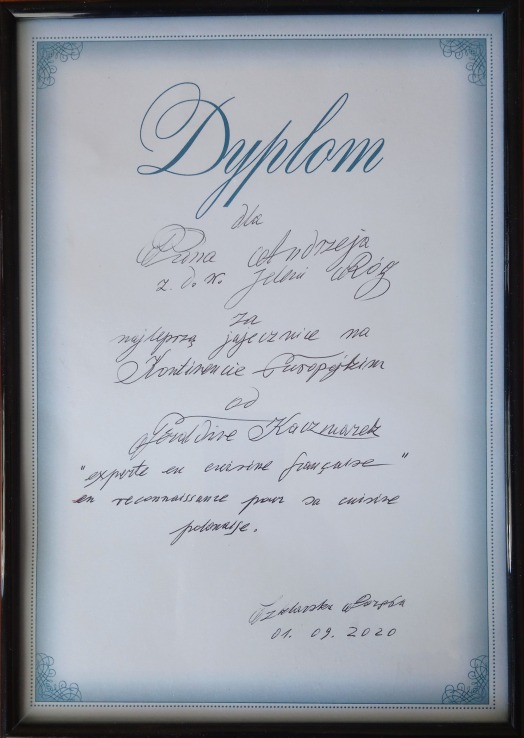 Dyplom
dla
Pana Andrzeja
z d. w. Jeleni Róg
za
najlepszą jajecznicę na
Kontinencie Europejskim
od
Kaczmarek
"experte en cuisine française"
en reconnaissance pour sa cuisine
polonaise.
Szklarska Poręba
01. 09. 2020